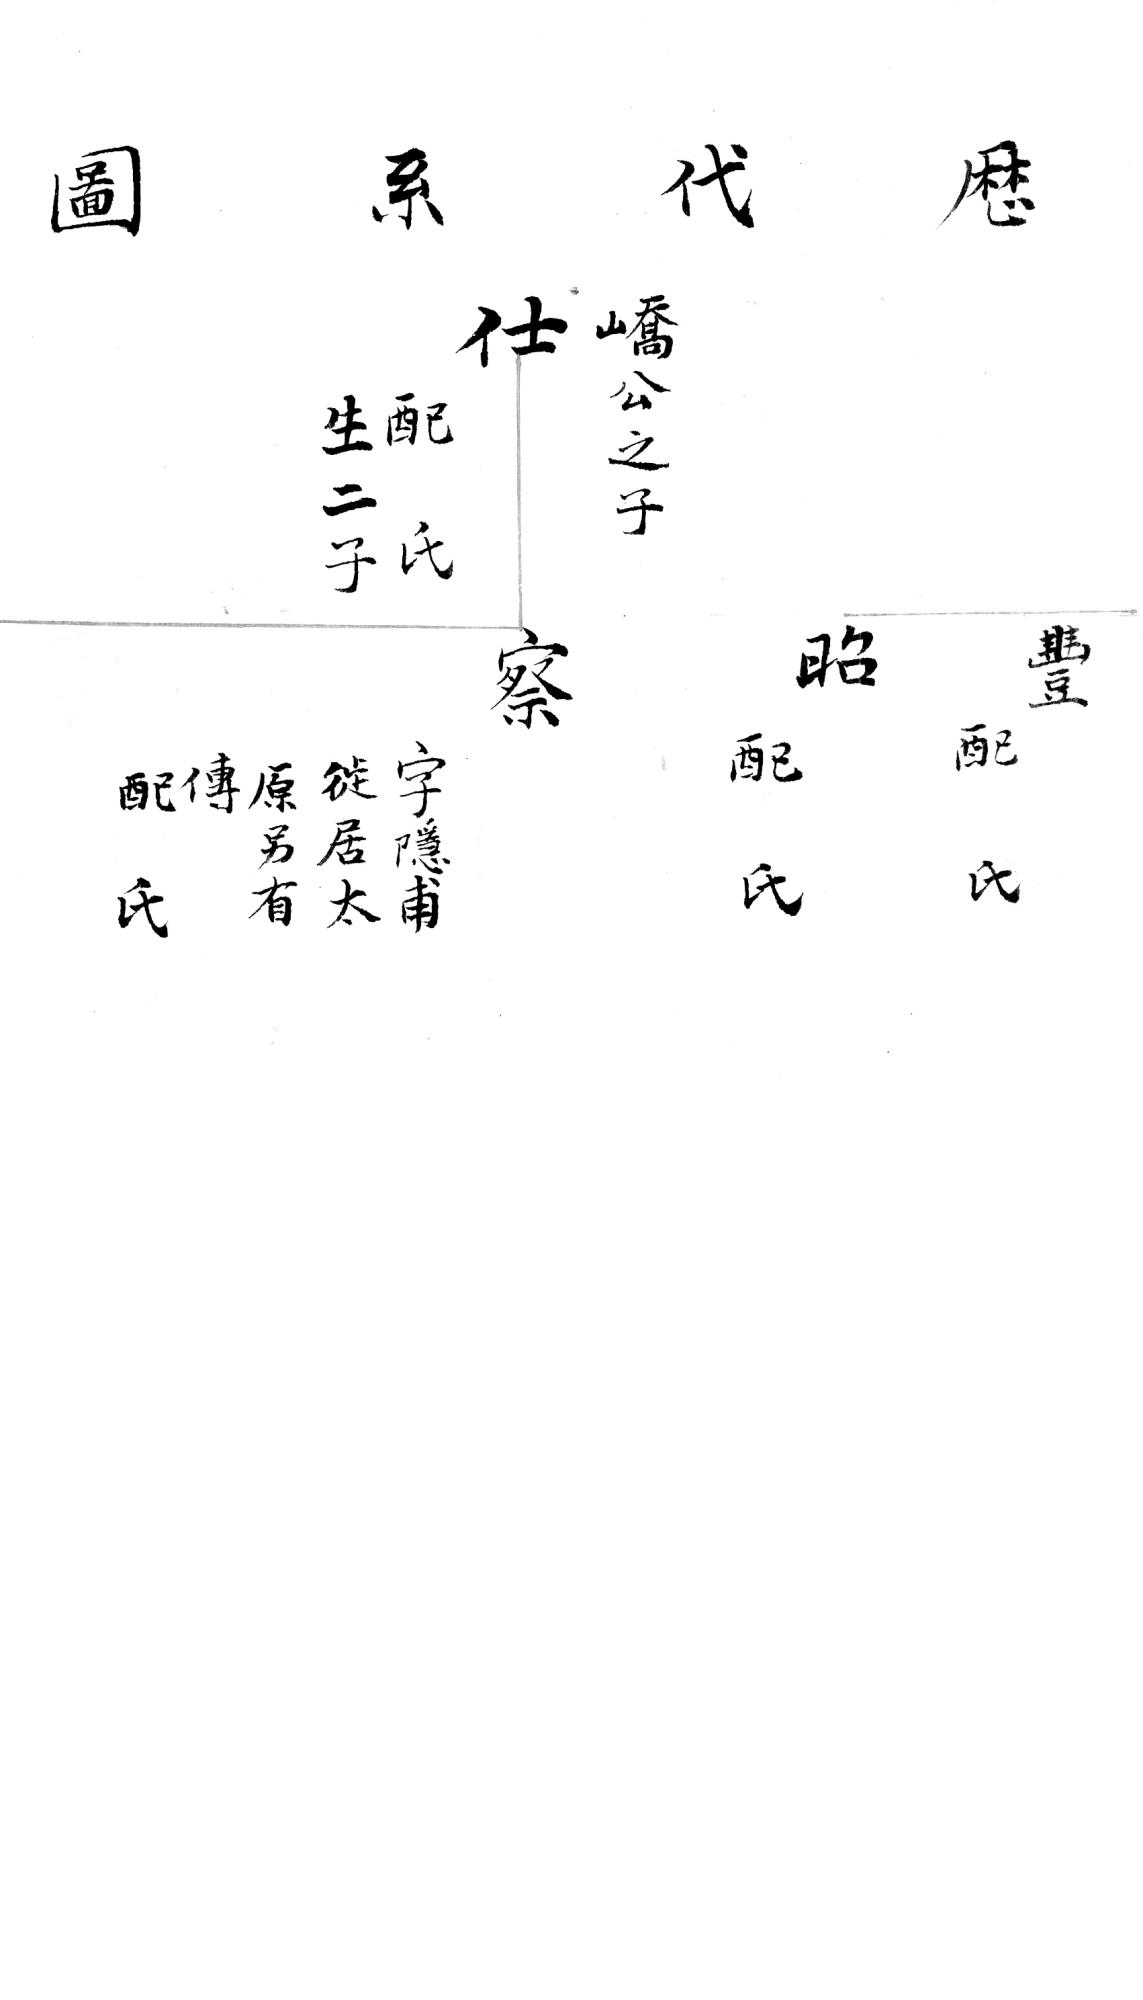 歷代系圖
嶠公之子
仕
配 氏
生二子
豐
配 氏
昭
配 氏
察
字隱甫
徙居太
原另有
傳
配 氏